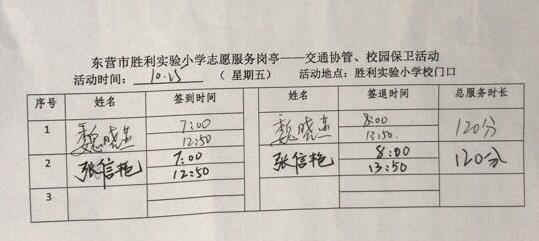 东营市胜利实验小学志愿服务岗亭——交通协管、校园保卫活动
活动时间： 10.25 （ 星期五） 活动地点：胜利实验小学校门口
序号 姓名 签到时间 姓名 签退时间 总服务时长
1 魏晓燕 7:00 魏晓燕 8:00 120分
12:50 13:50
2 张信艳 7:00 张信艳 8:00 120分
12:50 13:50
3